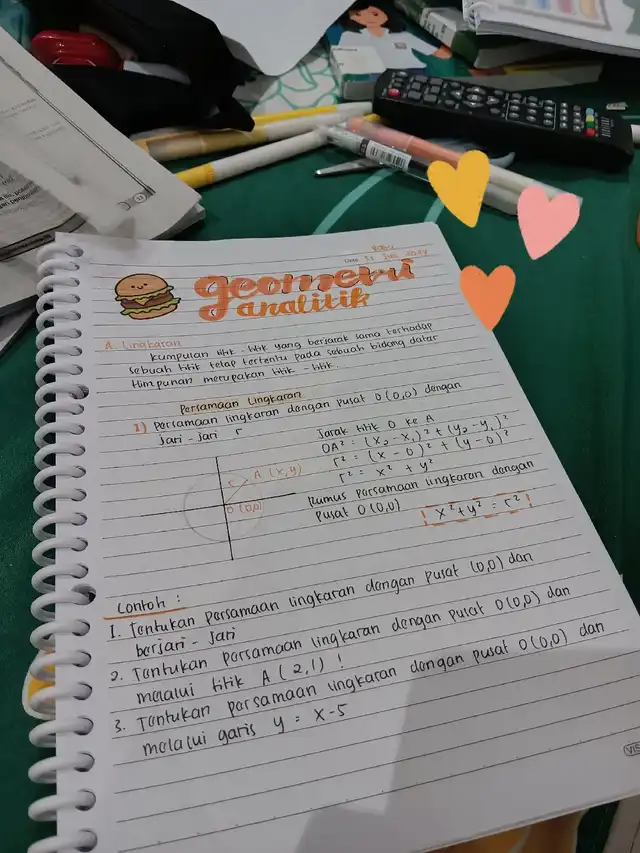 Rabu
Date
geometri
analitik
A. Lingkaran
Kumpulan titik - titik yang berjarak sama terhadap
sebuah titik tetap tertentu pada sebuah bidang datar
Himpunan merupakan titik - titik.
Persamaan Lingkaran
1) Persamaan lingkaran dengan pusat O (0,0) dengan
Jari - Jari r
Jarak titik O ke A
OA² = (x₂ - x₁)² + (y₂ - y₁)²
r² = (x - 0)² + (y - 0)²
r² = x² + y²
r
A (x,y)
O (0,0)
Rumus Persamaan lingkaran dengan
Pusat O (0,0)
x² + y² = r²
Contoh :
1. Tentukan persamaan lingkaran dengan pusat (0,0) dan
berjari - jari
2. Tentukan persamaan lingkaran dengan pusat O (0,0) dan
melalui titik A (2,1) !
3. Tentukan persamaan lingkaran dengan pusat O (0,0) dan
melalui garis y = x - 5